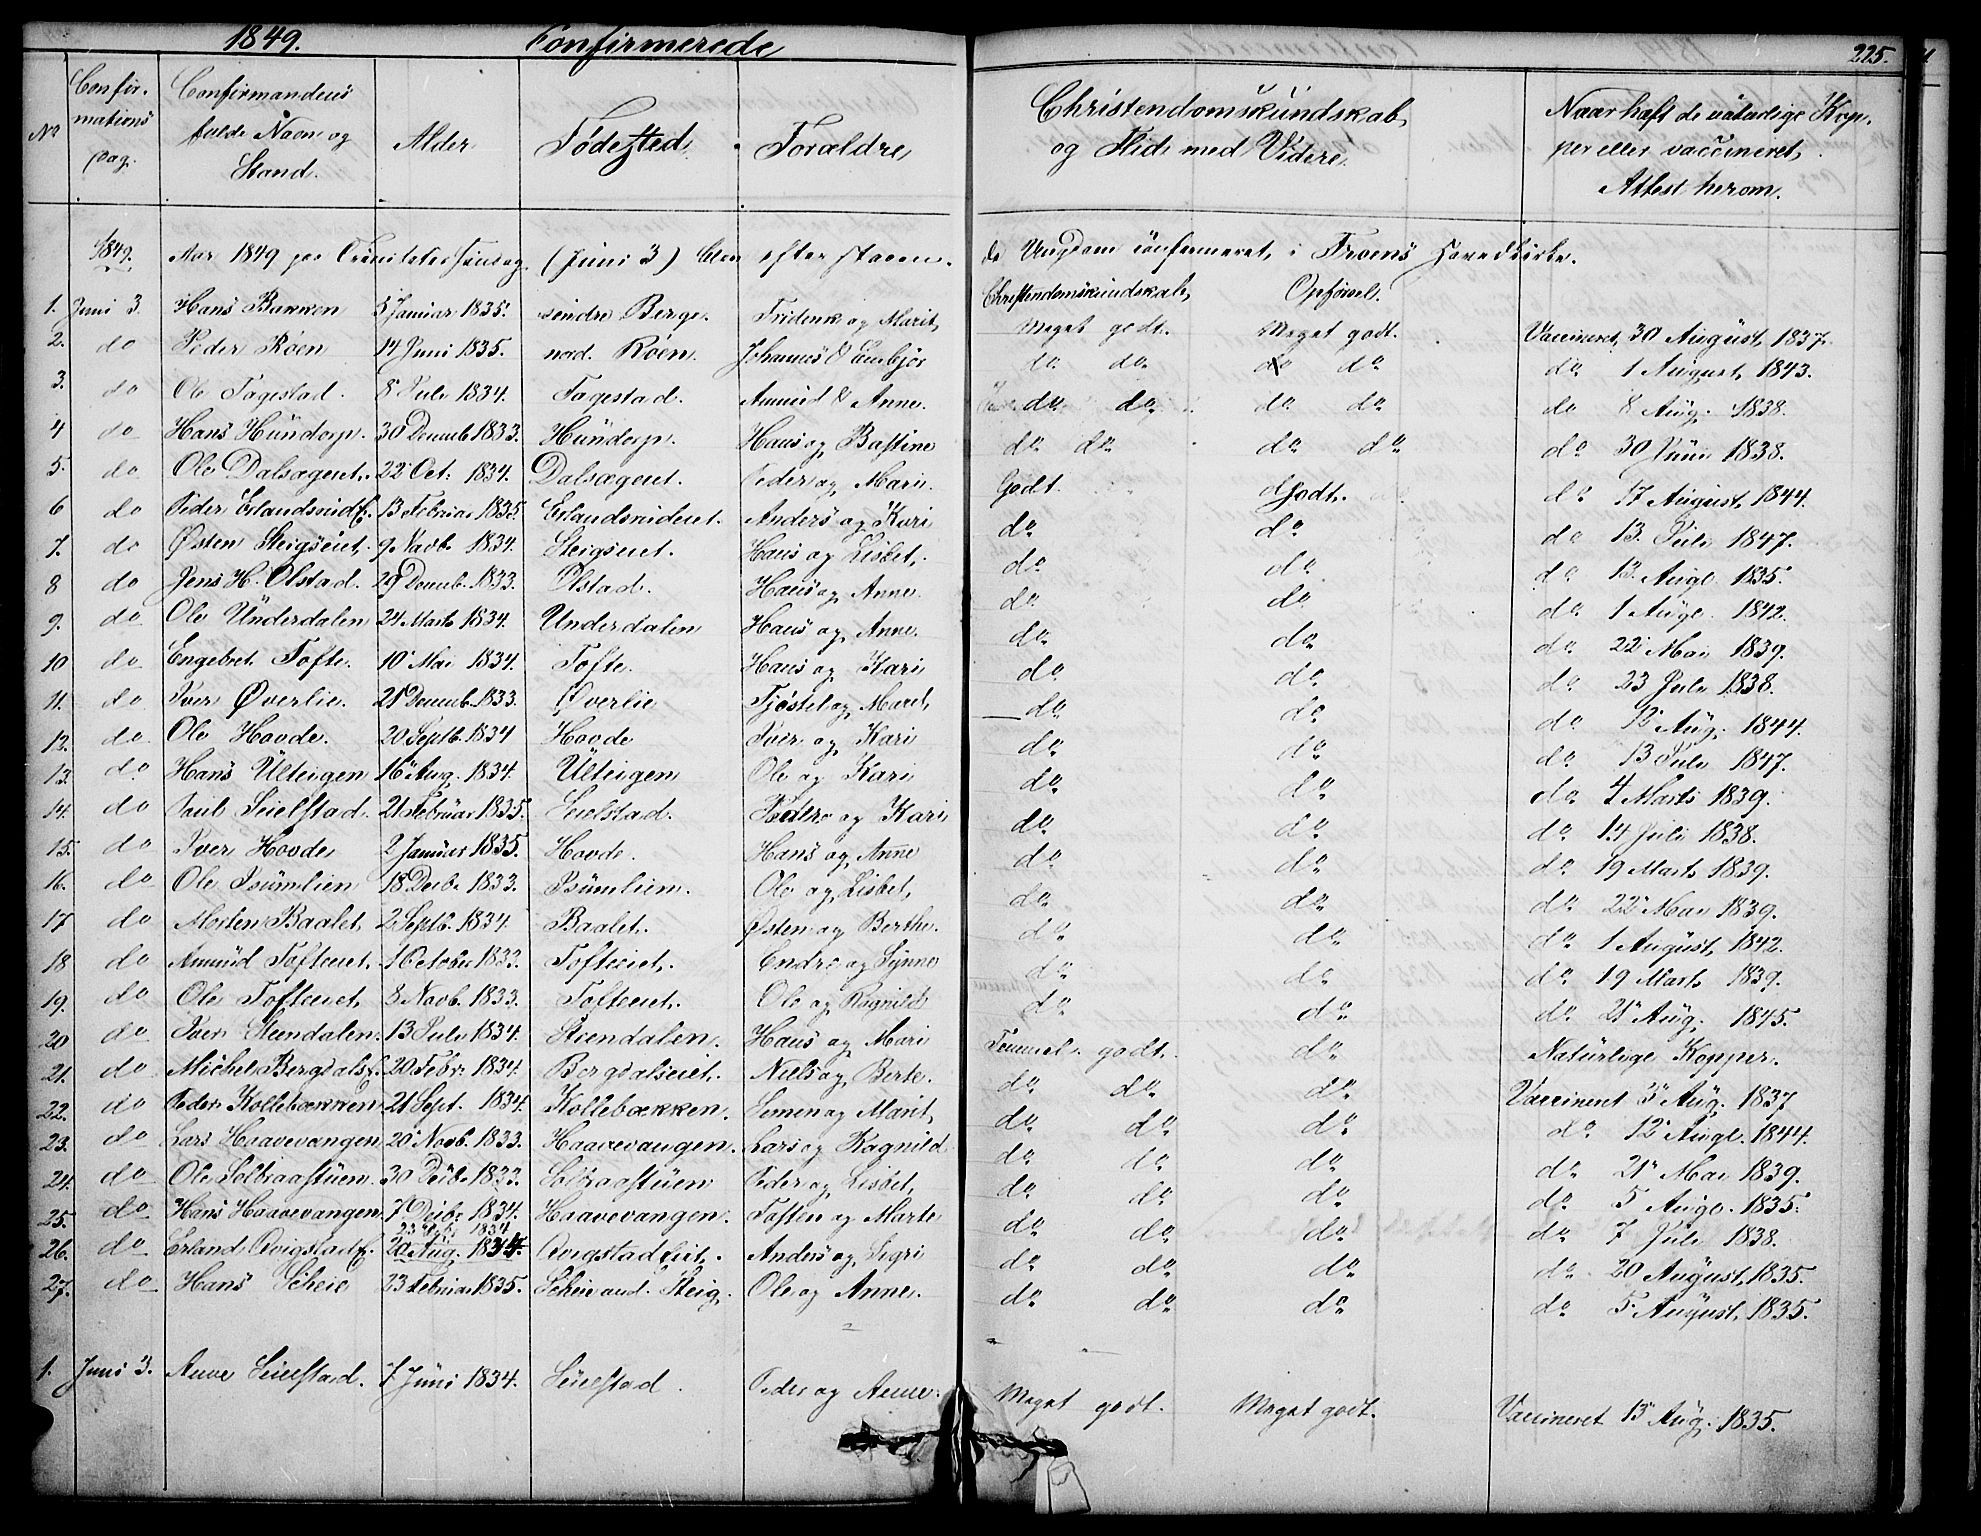 1849. Confirmerede
225.
No Confir- mations Dag. Confirmandens fulde Navn og Stand. Alder Fødested Forældre Christendomskundskab og Flid med Videre. Naar haft de naturlige Kop- per eller vaccineret, Attest herom.
1849. Aar 1849 paa Trinitatis (Juni 3) blev efterstaaende Ungdom confirmeret i Froens Hovedkirke.
Christendomskundskab, Opførsel.
1. Juni 3. Hans Bakken 5 Januar 1835. søndre Berge. Fridenk og Marit, Meget godt. Meget godt. Vaccineret 30 August 1837.
2. do Peder Röen 14 Juni 1835. nord. Röen. Johannes & Embjør do do do do do 1 August 1843.
3. do Ole Fagestad. 8 Juli 1834. Fagestad. Amund & Anne. do do do do do 8 Aug. 1838.
4 do Hans Hundorp. 30 Decemb 1833. Hundorp. Hans og Bastine do do do do do 30 Juni 1838.
5. do Ole Dalsægeiet. 22 Oct. 1834. Dalsægeiet. Peder og Mari. Godt. Godt. do 17 August 1844.
6 do Peder 13 Februar 1835. Anders og Kari do do do 13. Juli 1847.
7. do Østen Steigseiet. 9 Novb. 1834. Steigseiet. Hans og Lisbet. do do do 13. Augt. 1835.
8 do Jens H. Olstad. 29 Decemb. 1833. Olstad. Hans og Anne. do do do 1 Augt. 1842.
9. do Ole Underdalen 24 Marts 1834. Underdalen Hans og Anne. do do do 22 Mai 1839.
10 do Engebret Tofte. 10 Mai 1834. Tofte. Hans og Kari do do do 23 Juli 1838.
11. do Iver Øverlie. 21 Decemb. 1833. Øverlie Tjøstel og Maret, do do do Aug. 1844.
12. do Ole Hovde. 20 Septb. 1834 Hovde Iver og Kari do do do 13 Juli 1847.
13. do Hans Ulteigen 16 Aug. 1834. Ulteigen Ole og Kari do do do 4 Marts 1839.
14. do Seielstad. 21 Februar 1835. Seielstad. Peder og Kari do do do 14 Juli 1838.
15. do Iver Hovde 2 Januar 1835. Hovde. Hans og Anne do do do 19 Marts 1839.
16. do Ole Isumlien 18 Decbr 1833. Isumlien. Ole og Lisbet, do do do 22 Mai 1839.
17 do Morten Baalet, 2 Septb. 1834. Baalet. Østen og Berthe. do do do 1 August 1842.
18 do Amund Tofteeiet. 1 October 1833. Tofteeiet. Endre og Synne do do do 19 Marts 1839.
19. do Ole Tofteeiet, 8 Novb. 1833. Tofteeiet. Ole og Ragnild do do do 21 Aug. 1845.
20 do Iver Steendalen. 13 Juli 1834. Steendalen. Hans og Mari Temmel. godt. do Naturlige Kopper.
21. do Michel Bergdals 20 Febr. 1834. Bergdalseiet. Niels og Berte. do do do Vaccineret 3 Aug. 1837
22. do Peder Kollebækken 21 Sept. 1834. Kollebækken. Simen og Marit, do do do do 12 Augt. 1844.
23. do Lars Haavevangen 20 Novb. 1833. Haavevangen. Lars og Ragnild do do do do 21 Mai 1839.
24. do Ole Solbraastuen. 30 Decbr 1833. Solbraastuen Peder og Lisbet, do do do do 5 Augt. 1835.
25. do Hans Haavevangen. 7 Decbr 1834. Haavevangen. Torsten og Marte do do do do 7 Juli 1838.
26. do Erland 1834 20 Aug. 1834. Anders og Sigri do do do do 20 August 1835.
27. do Hans Scheie 23 Februar 1835. Scheie Steig. Ole og Anne. do do do do 5 August 1835.
1. Juni 3. Anne Seielstad. 7 Juni 1834. Seielstad. Peder og Anne. Meget godt. Meget godt. Vaccineret 13 Aug. 1835.